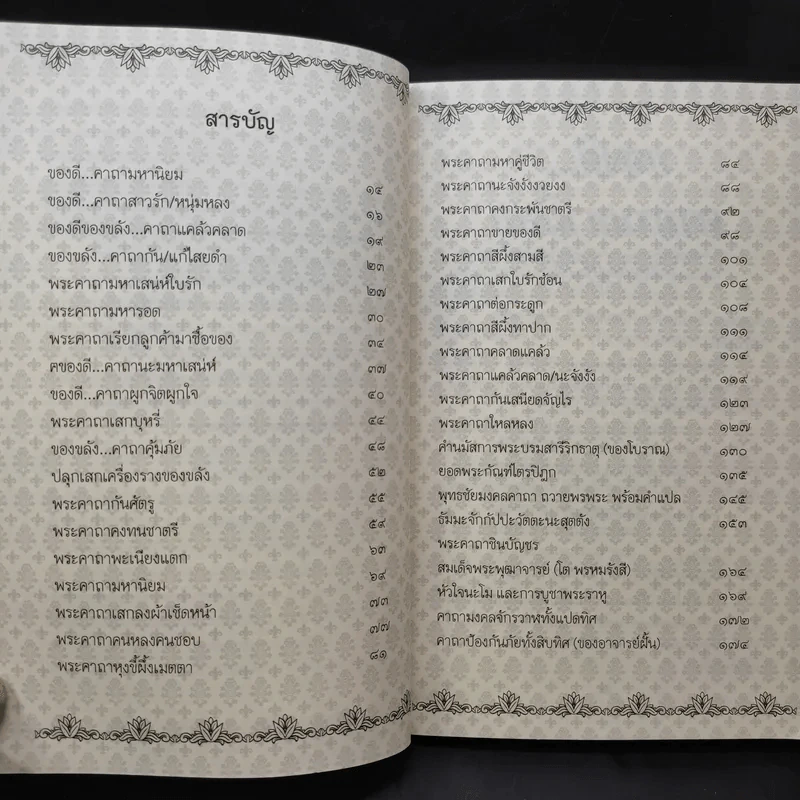 สารบัญ
ของดี...คาถามหานิยม ๑๔
ของดี...คาถาสาวรัก/หนุ่มหลง ๑๖
ของดีของขลัง...คาถาแคล้วคลาด ๑๙
ของขลัง...คาถากัน/แก้ไสยดำ ๒๓
พระคาถามหาเสน่ห์ใบรัก ๒๗
พระคาถามหารอด ๓๐
พระคาถาเรียกลูกค้ามาซื้อของ ๓๔
ศของดี...คาถานะมหาเสน่ห์ ๓๗
ของดี...คาถาผูกจิตผูกใจ ๔๐
พระคาถาเสกบุหรี่ ๔๔
ของขลัง...คาถาคุ้มภัย ๔๘
ปลุกเสกเครื่องรางของขลัง ๕๒
พระคาถากันศัตรู ๕๕
พระคาถาคงทนชาตรี ๕๙
พระคาถาพะเนียงแตก ๖๓
พระคาถามหานิยม ๖๙
พระคาถาเสกลงผ้าเช็ดหน้า ๗๓
พระคาถาคนหลงคนชอบ ๗๗
พระคาถาหุงขี้ผึ้งเมตตา ๘๑
พระคาถามหาคู่ชีวิต ๘๔
พระคาถานะจังงังงวยงง ๘๘
พระคาถาคงกระพันชาตรี ๙๒
พระคาถาขายของดี ๙๘
พระคาถาสีผึ้งสามสี ๑๐๑
พระคาถาเสกใบรักซ้อน ๑๐๔
พระคาถาต่อกระดูก ๑๐๘
พระคาถาสีผึ้งทาปาก ๑๑๑
พระคาถาคลาดแคล้ว ๑๑๔
พระคาถาแคล้วคลาด/นะจังงัง ๑๑๙
พระคาถากันเสนียดจัญไร ๑๒๓
พระคาถาใหลหลง ๑๒๗
คำนมัสการพระบรมสารีริกธาตุ (ของโบราณ) ๑๓๐
ยอดพระกัณฑ์ไตรปิฎก ๑๓๕
พุทธชัยมงคลคาถา ถวายพรพระ พร้อมคำแปล ๑๔๕
ธัมมะจักกัปปะวัตตะนะสุตตัง ๑๕๓
พระคาถาชินบัญชร
สมเด็จพระพุฒาจารย์ (โต พรหมรังสี) ๑๖๔
หัวใจนะโม และการบูชาพระราหู ๑๖๙
คาถามงคลจักรวาฬทั้งแปดทิศ ๑๗๒
คาถาป้องกันภัยทั้งสิบทิศ (ของอาจารย์ฝั้น) ๑๗๔